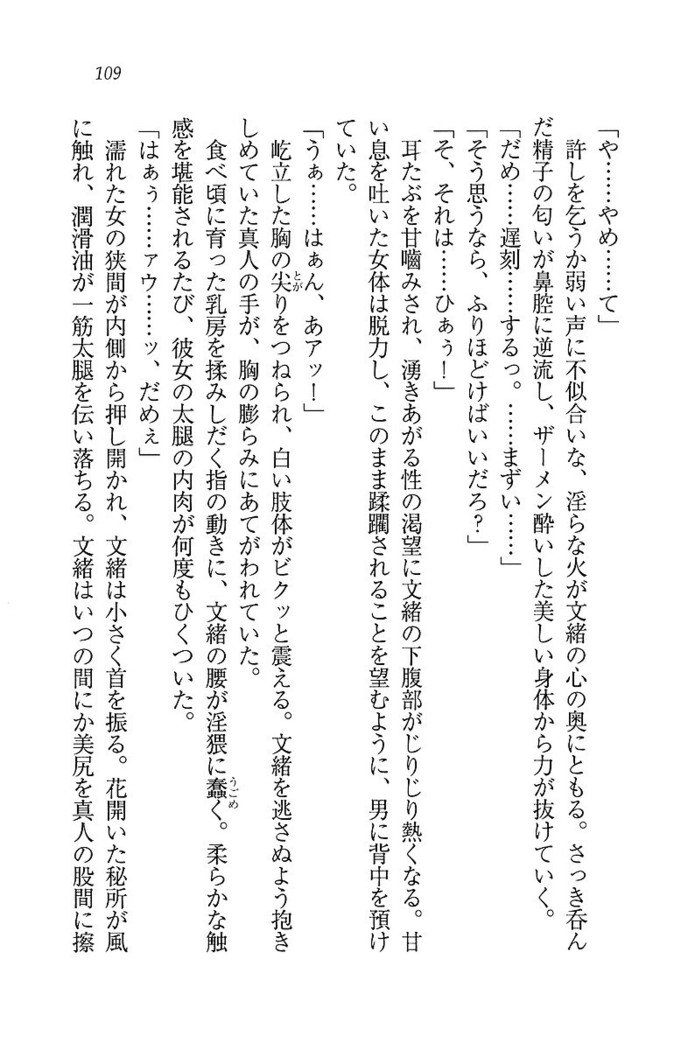 109
「や……やめ……て」
許しを乞うか弱い声に不似合いな、淫らな火が文緒の心の奥にともる。さっき呑ん
だ精子の匂いが鼻腔に逆流し、ザーメン酔いした美しい身体から力が抜けていく。
「だめ……遅刻……するっ。……まずい……」
「そう思うなら、ふりほどけばいいだろ？」
「そ、それは……ひぁぅ！」
耳たぶを甘嚙みされ、湧きあがる性の渇望に文緒の下腹部がじりじり熱くなる。甘
い息を吐いた女体は脱力し、このまま蹂躙されることを望むように、男に背中を預け
ていた。
「うぁ……はぁん、あアッ！」
屹立した胸の尖りをつねられ、白い肢体がビクッと震える。文緒を逃さぬよう抱き
とが
しめていた真人の手が、胸の膨らみにあてがわれていた。
食べ頃に育った乳房を揉みしだく指の動きに、文緒の腰が淫猥に蠢く。柔らかな触
うごめ
感を堪能されるたび、彼女の太腿の内肉が何度もひくついた。
「はぁぅ……ァウ……ッ、だめぇ」
濡れた女の狭間が内側から押し開かれ、文緒は小さく首を振る。花開いた秘所が風
に触れ、潤滑油が一筋太腿を伝い落ちる。文緒はいつの間にか美尻を真人の股間に擦